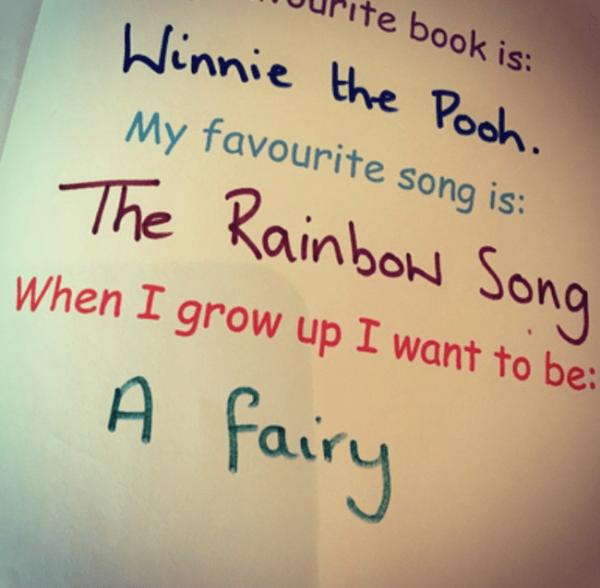 ourite book is:
Winnie the Pooh.
My favourite song is:
The Rainbow Song
When I grow up I want to be:
A fairy